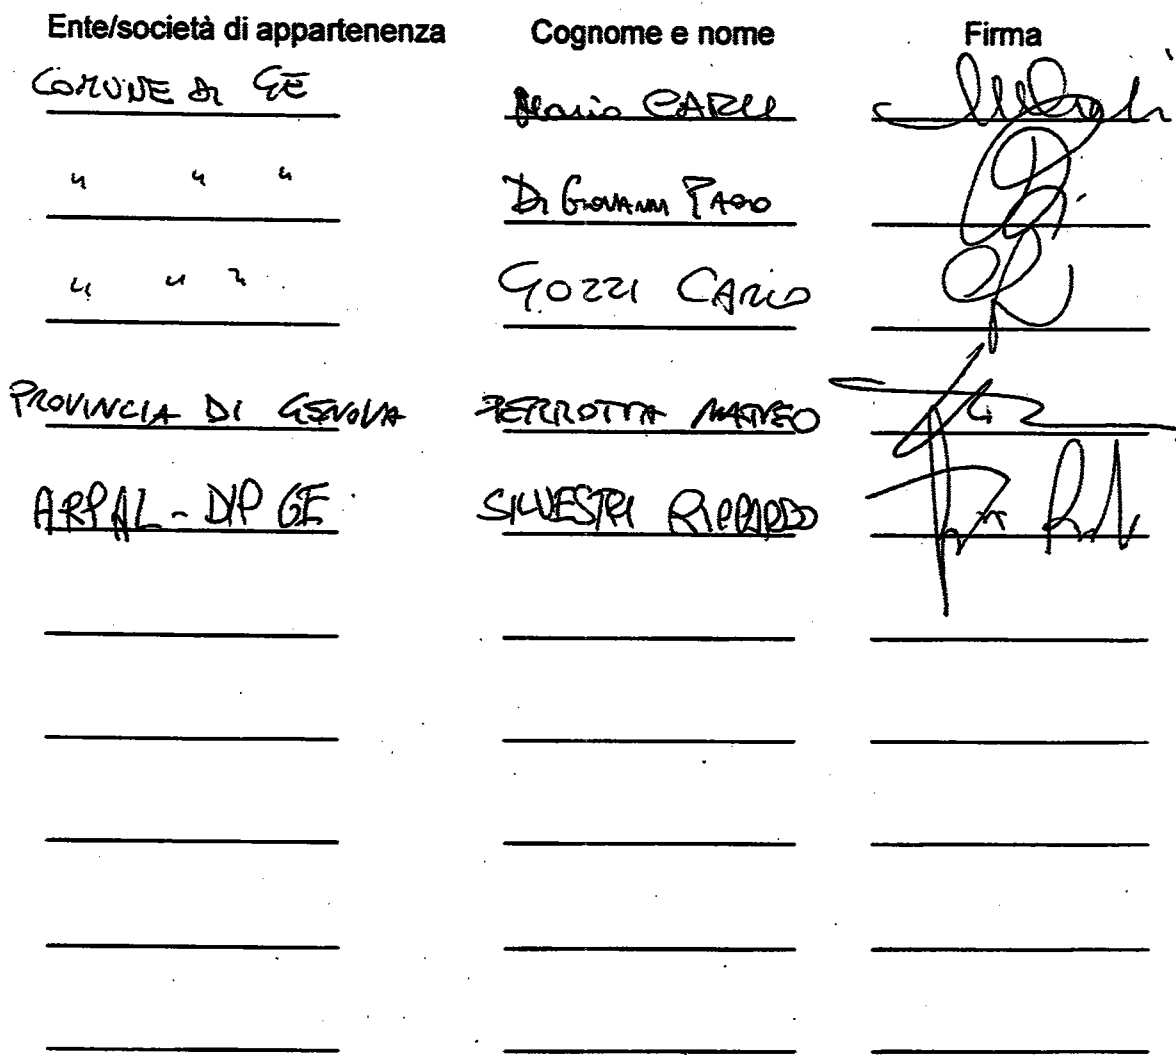 Ente/società di appartenenza Cognome e nome Firma
COMUNE DI GE Mario CARLI
" " " Di Giovanni Paolo
" " " GOZZI CARLO
PROVINCIA DI GENOVA PERROTTA MATTEO
ARPAL - DIP GE SILVESTRI RICCARDO